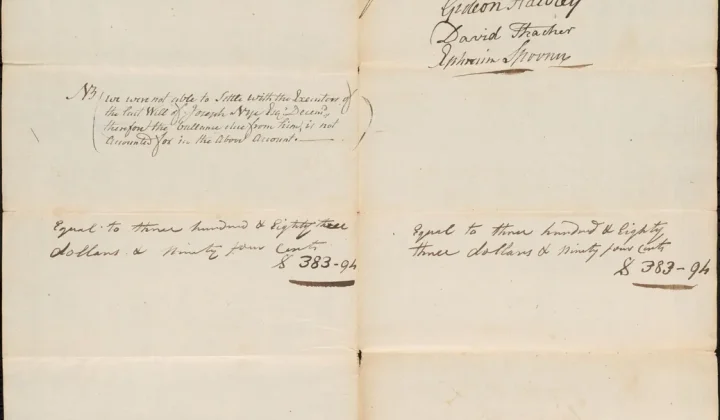 Gideon Hawley
David Thacher
Ephraim Spooner
NB (we were not able to Settle with the Executors of
the last Will of Joseph Nye Esqr. Decemd.
therefore the ballance due from him, is not
Accounted for in the Above Account.
Equal to three hundred & Eighty three
dollars & Ninety four Cents
$ 383-94
Equal to three hundred & Eighty
three dollars & Ninety four Cents
$ 383-94